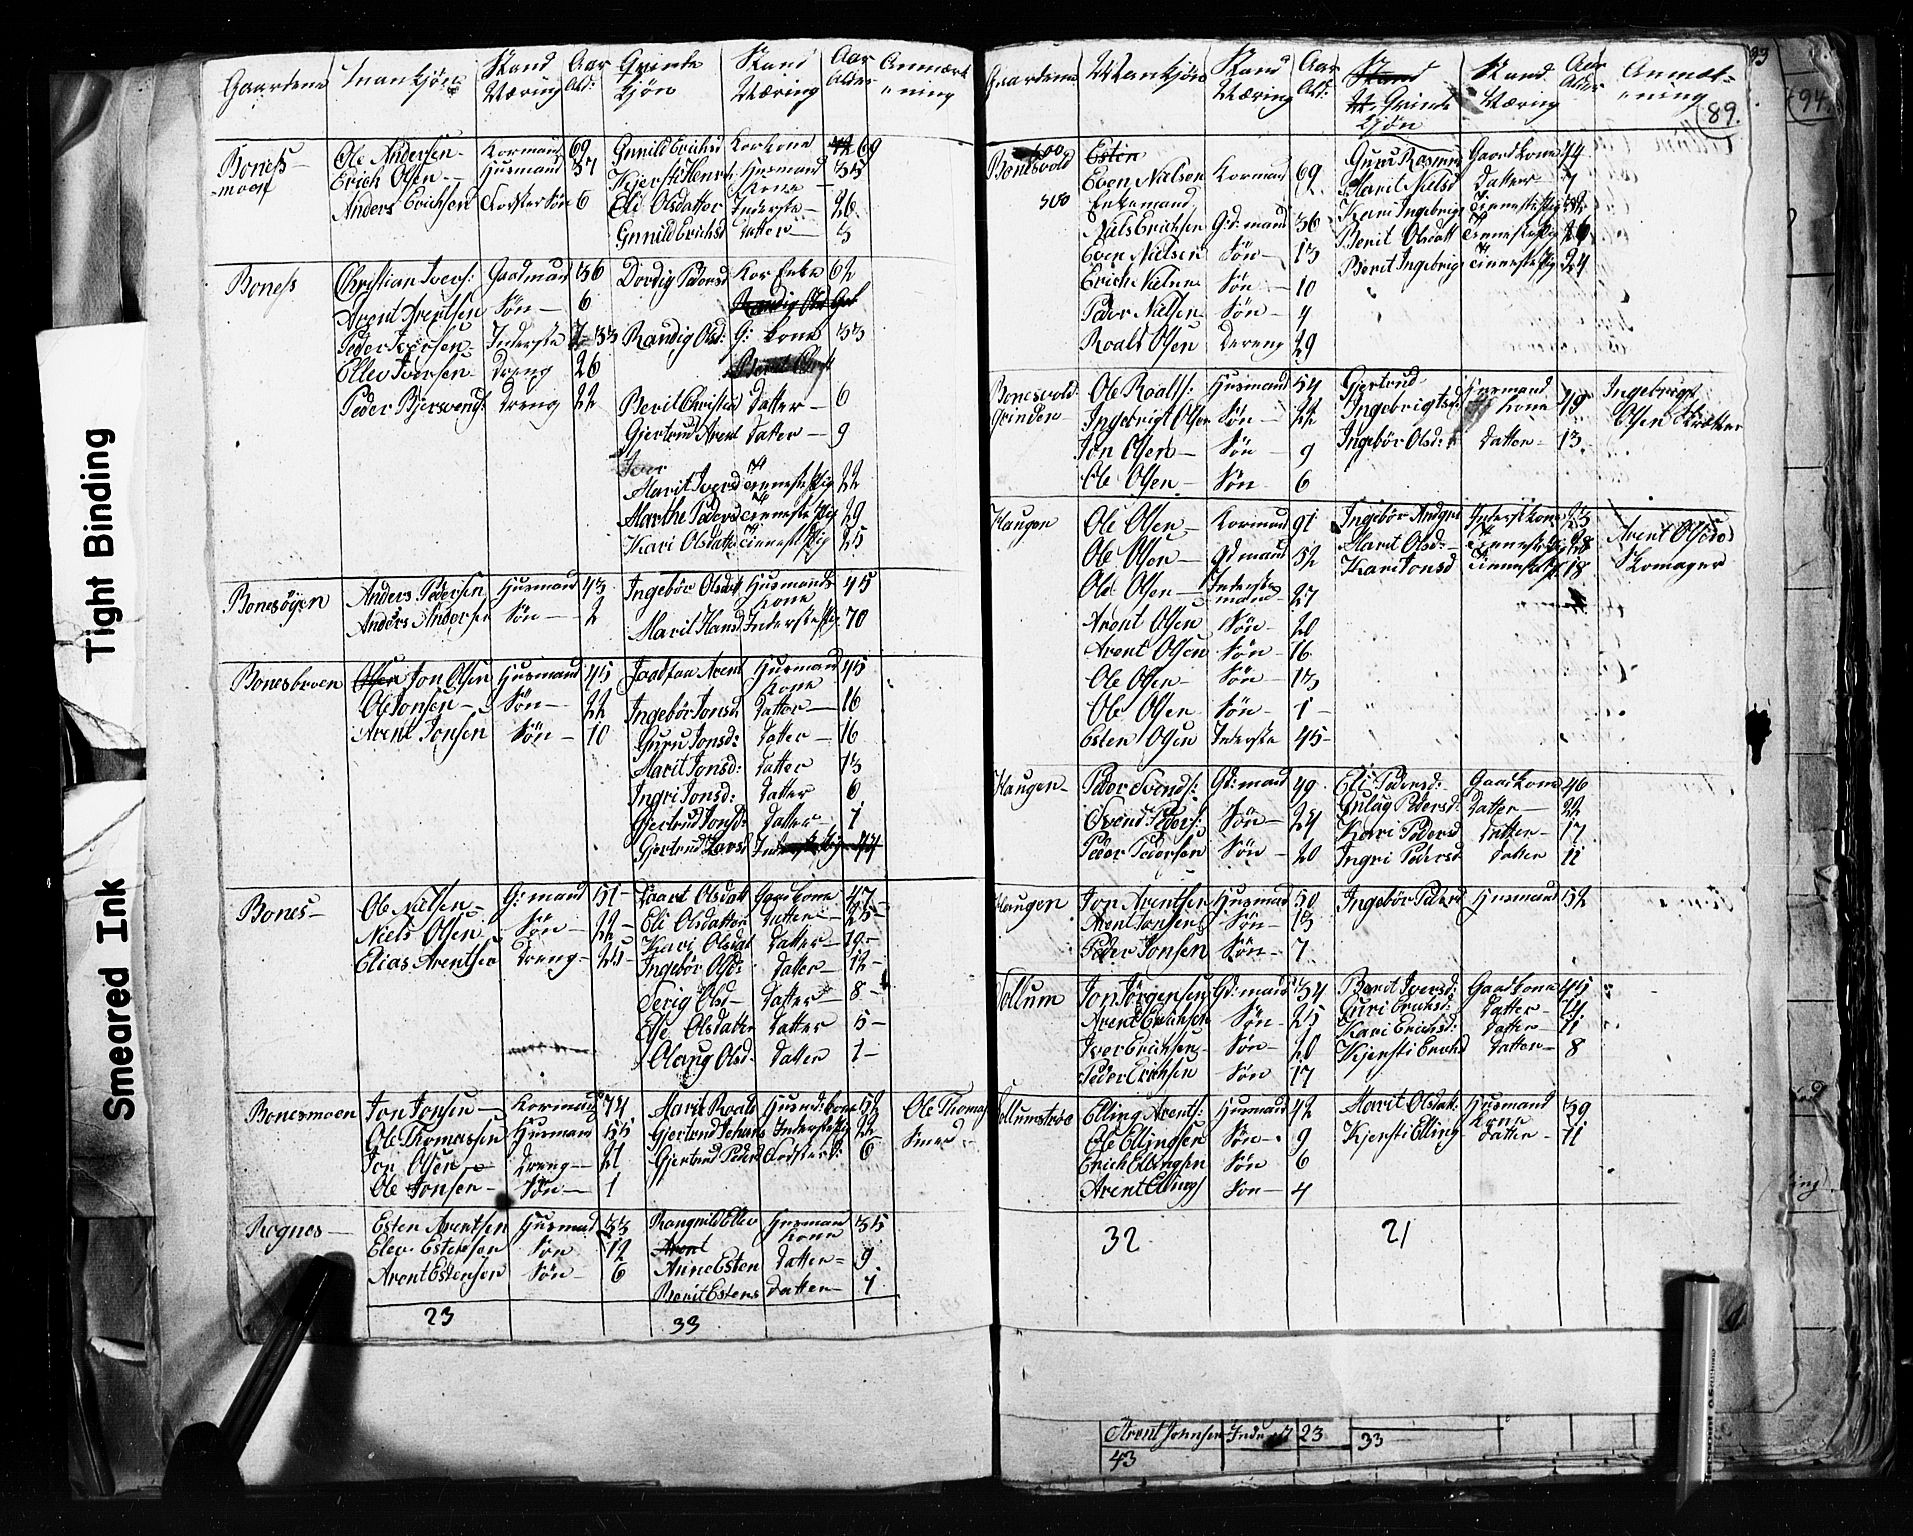 Tight Binding
Smeared Ink
Gaardene Mankjøn Stand Næring Aar Ald: Qvinde Kjøn Stand Næring Aar Alder Anmærkning
Boness-moen
Ole Andersen Kormand 69 Gunild Erichsd Korkone 69
Erich Olsen Husmand 37 Kjersti Henr Husmand Kone 35
Anders Erichsen Fostersøn 6 Eli Olsdatter Inderste 26
Gunild Erichsd datter 3
Boness
Christian Ivers: Gaadmand 36 Dordig Pedersd Kor Enke 62
Arent Arentsen Søn 6
Peder Iversen Inderste 33 Randig Olsd: G: Kone 33
Ellev Iversen Dreng 26
Peder Bjersvend: Dreng 22 Berit Christia datter 6
Gjertrud Arent datter 9
Iver
Marit Iversd Tieneste Pig 22
Marthe Pedersd Tieneste Pig 29
Kari Olsdatter Tieneste Pig 25
Bonesøyen
Anders Pedersen Husmand 43 Ingebør Olsdat Husmands Kone 45
Anders Andersen Søn 2 Marit Hansd Inderste Pig 70
Bonesbroen
Olsen Jon Olsen Husmand 45 Arent Husmand Kone 45
Ole Jonsen Søn 22 Ingebør Jonsd datter 16
Arent Jonsen Søn 10 Guru Jonsd: datter 16
Marit Jonsd: datter 13
Ingri Jonsd: datter 6
Gjertrud Jonsd: datter 1
Gjertrud Larsd
Bones
Ole Nilsen G: mand 51 Olsdatt Gaadkone 47
Niels Olsen Søn 22 Eli Olsdatter datter 25
Elias Arentsen Dreng 25 Kari Olsdat datter 19
Ingebør Olsd: datter 12
Serig Olsd datter 8
Else Olsdatter datter 5
Olaug Olsd datter 1
Bonesmoen
Jon Jonsen Kormand 74 Marit Roals Husmd: kone 52 Ole Thomas
Ole Thomassen Husmand 55 Gjertrud Johans Inderste Pig 22 Smed
Jon Olsen Dreng 21 Gjertrud Peders Fosterd: 6
Ole Jonsen Søn 1
Rognes
Esten Arentsen Husmand 33 Rangnild Ellev Husmand Kone 35
Elev Estensen Søn 12 Arent
Arent Estensen Søn 6 Anne Esten datter 9
Berit Estens datter 1
23 33
33
94
89.
Gaardene Mankjøn Stand Næring Aar Ald: Stand Qvinde Kjøn Stand Næring Aar Alder Anmærkning
Bonesvold
300
Esten Guru Rasmus Gaardkone 44
Even Nilsen Kormand 69 Marit Nielsd datter 7
Enkemand Kari Ingebrigs Tieneste Pig
Niels Erichsen G:d: mand 36 Berit Olsdatt Tieneste Pig
Even Nielsen Søn 13 Berit Ingebrig Tieneste Pig 24
Erich Nilsen Søn 10
Peder Nilsen Søn 4
Roald Olsen Dereng 29
Bonesvold Grinden
Ole Roalss: Husmand 54 Gjertrud Ingebrigtsd Husmand Kone 49 Ingebrigt
Ingebrigt Olsen Søn 22 Olsen Skrædder
Jon Olsen Søn 9 Ingebør Olsd: datter 13
Ole Olsen Søn 6
Haugen
Ole Olsen Kormand 91 Ingebør Anders Inderst kone 23 Arent Olsøn
Ole Olsen Gd mand 52 Marit Olsd: Tieneste Pig 28 Skomager
Ole Olsen Inderste mand 27 Kari Jonsd Tieneste Pig 18
Arent Olsen Søn 20
Arent Olsen Søn 16
Ole Olsen Søn 13
Ole Olsen Søn 1
Esten Olsen Inderste 45
Haugen
Peder Svends: Gd: mand 49 Eli Pedersd: Gaadkone 46
Svend Peders: Søn 24 Gulag Pedersd: datter 22
Peder Pedersen Søn 20 Kari Pedersd datter 17
Ingri Pedersd datter 11
Haugen
Jon Arentsen Husmand 50 Ingebør Pedersd Husmand 52
Arent Jonsen Søn 13
Peder Jonsen Søn 7
Sollum
Jon Jørgensen Gd: mand 34 Berit Iversd: Gaadkone 45
Arent Erichsen Søn 25 Guri Erichsd: datter 14
Iver Erichsen Søn 20 Kari Erichsd: datter 11
Peder Erichsen Søn 17 Kjersti Erichsd datter 8
Sollumstrøe
Elling Arents: Husmand 42 Marit Olsdat: Husmand Kone 39
Ole Ellingsen Søn 9 Kjersti Elling datter 11
Erich Ellingsen Søn 6
Arent Ellings Søn 4
32 21
Arent Johnsen 23
43 33